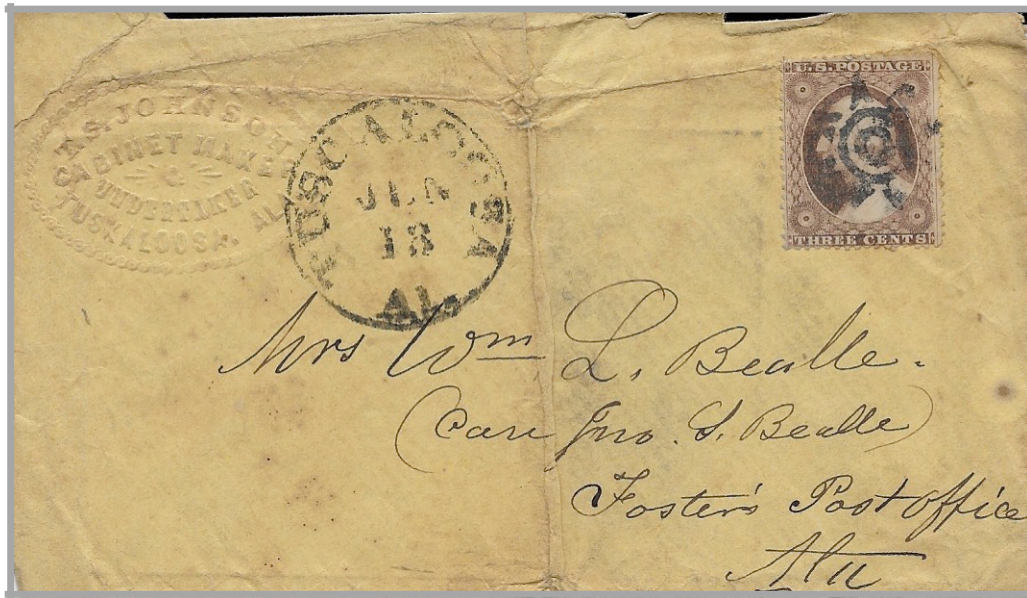 S. JOHNSON
CABINET MAKER
&
UNDERTAKER
TUSKALOOSA. AL
TUSCALOOSA
18
AL.
U.S. POSTAGE
THREE CENTS
Mrs Wm L. Bealle.
(Care Jno. S. Bealle)
Foster's Post office
Ala